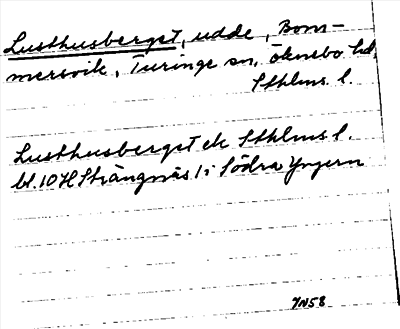 Lusthusberget, udde, Bom-
mersvik, Turinge sn, Öknebo hd,
Sthlms l.
Lusthusberget ek Sthlms l.
bl. 10 H Strängnäs 1 i Södra Yngern
YN58